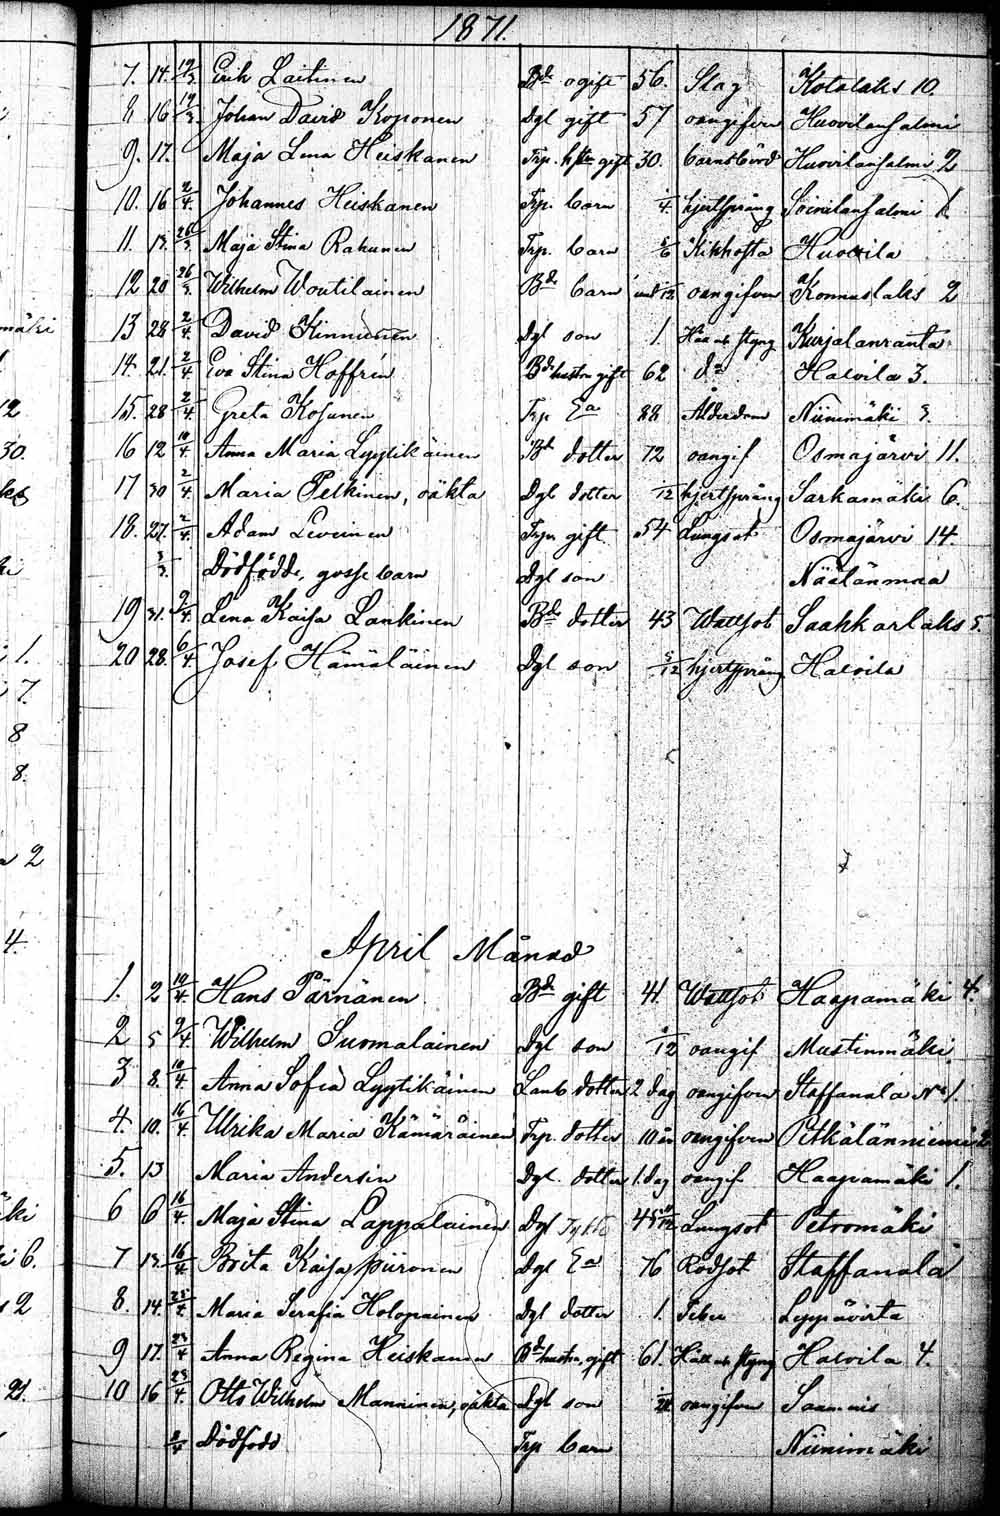 1871.
7. 14. 19/3. Erik Laitinen Bde ogift 56. Slag Kotalaks 10.
8 16 19/3. Johan David Koponen Dgl gift 57 oangifven Huovilansalmi
9. 17. Maja Lena Heiskanen Trp. hstr gift 30. barnsbörd Huovilansalmi 2
10. 16 2/4. Johannes Heiskanen Trp. barn 1/4. hjertsprång
11. 13. 26/3. Maja Stina Rahunen Trp. barn 5/6 Kikhosta Huovila
12 20 26/3. Wilhelm Woutilainen Bde barn oangifven Konnuslaks 2
13 28 2/4. David Kinnunen Dgl son 1. Håll o. styng Kurjalanranta
14. 21. 2/4. Eva Stina Hoffrén Bde hustru gift 62 do Halvila 3.
15. 28 2/4 Greta Kosunen Trp Ea 88 Ålderdom Niinimäki 3.
16 12 10/4. Anna Maria Lyytikäinen Bd dotter 12 oangif Osmajärvi 11.
17 30 2/4 Maria Pelkinen, oäkta Dgl dotter /12 hjertsprång Sarkamäki 6.
18. 27. 2/4. Adam Leveinen Trpr gift 54 Lungsot Osmajärvi 14.
3/3. Dödfödde, gosse barn Dgl son Näälänmaa
19 31. 9/4. Lena Kaisa Lankinen Bde dotter 43 Wattsot Saahkarlaks 5.
20 28. 6/4 Josef Hämäläinen Dgl son 5/12 hjertsprång Halvila
April Månad
1. 2 10/4. Hans Pärnänen Bde gift 41. Wattsot Haapamäki 4.
2 5 9/4. Wilhelm Suomalainen Dgl son /12 oangif Mustinmäki
3 8. 10/4 Anna Sofia Lyytikäinen Lanb dotter 2 dag oangifven Staffanala No 1.
4. 10. 16/4. Ulrika Maria Kämäräinen Trp. dotter 10 oangifven Pitkälänniemi 2
5. 13 Maria Andersin Dgl. dotter 1. dag oangif Haapamäki 1.
6 6 16/4. Maja Stina Lappalainen Dgl 45 /12 Lungsot Petromäki
7 13. 16/4 Brita Kaisa Piironen Dgl Ea 76 Rödsot Staffanala
8. 14. Maria Serafia Holopainen Dgl dotter 1. Feber Leppävirta
9 17. 23/4 Anna Regina Heiskanen Bde hustru gift 61. Håll o. styng Halvila 4.
10 16 23/4. Otto Wilhelm Manninen, oäkta Dgl son oangifven Saamais
2/4 Dödfödd Trp barn Niinimäki